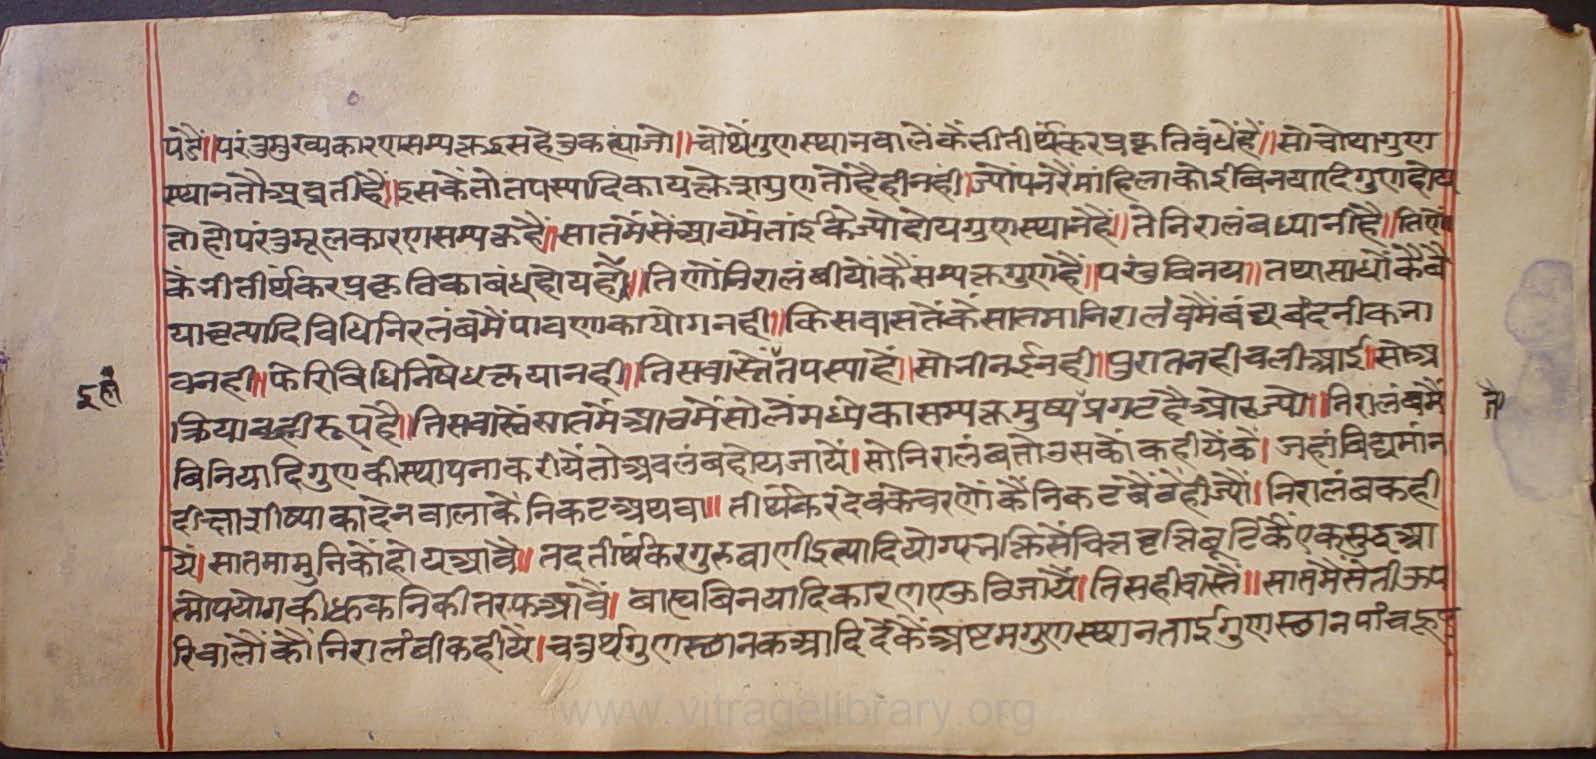 पडैं॥ परंतु मुख्यकारण सम्यक्त्व इस हेतुक त्यां जो॥ चोथें गुणस्थानवालें कैं नी तीर्थंकर प्रकृति बंधे हैं॥ सो चोथा गुण
स्थान तौ अव्रती हैं॥ इसकें तो तपस्यादि कायक्लेश गुण तो है ही नहीं। ज्यों पनरैं मांहिला कोई बिनयादि गुण होय
तो हो परंतु मूलकारण सम्यक्त हैं॥ सातमें सें आठमें तांई के ज्यो दोय गुणस्थान हैं॥ ते निरालंब ध्यानी है॥ तिणों
कै नी तीर्थंकर प्रकृति का बंध होय है॥ तिणों निरालंबीयों कैं सम्यक्त गुण हैं॥ परंतु बिनय॥ तथा साधों कै वै
यावृत्यादि विधि निरलंब मैं पावण का योग नही॥ किस वासतें कैं सातमा निरालंब मैं बंद्य बंदनीक ना
व नही॥ फेरि विधि निषेध क्रया नही॥ तिस वास्तैं तपस्या हैं॥ सो नी नई नही॥ पुरातनही चली आई॥ सो अ
क्रिया वृत्ती रूप है॥ तिस वास्तें सातमें आठमें सोलैं मध्ये का सम्यक्त मुष्य प्रगट है ओर ज्यो॥ निरालंब मैं
बिनियादि गुण की स्थापना करीयें तो अवलंब होय जायें। सो निरालंब तो उसकों कहीयें कैं। जहां विद्यमान
दीक्षा शीष्या का देनवाला कैं निकट अथवा॥ तीर्थंकर देव के चरणों कैं निकट बैठैं ही ज्यों। निरालंब कही
यं। सातमा मुनि कों होय आवै॥ तद तीर्थंकर गुरु बाणी इत्यादि योग्य न किसें चित्त वृत्ति बूटि कैं एक सुद्ध आ
त्मोपयोग की छक निकी तरफ आवैं। बाह्य बिनयादि कारण एऊ विजायैं। तिसही वास्तें॥ सातमैं सेती ऊप
रि वालों कौं निरालंबी कहीयै। चतुर्थ गुणस्थानक आदि दे कैं अष्टम गुणस्थान ताई गुणस्थान पांच
www.vitragelibrary.org